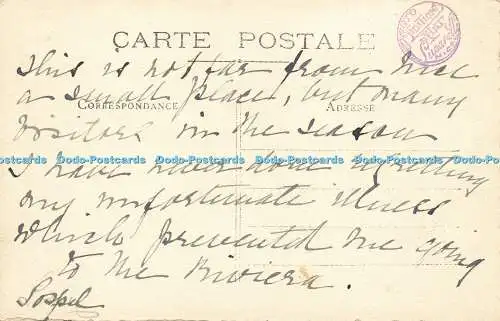 CARTE POSTALE
This is not far from Nice
a small place, but many
CORRESPONDANCE
ADRESSE
visitors in the season
Dodo-Postcards Dodo-Postcards Dodo-Postcards Dodo-Postcards Dodo-Postcards Dodo-Postcards
I have never done regretting
my unfortunate illness
which prevented me going
to the Riviera.
Sospel